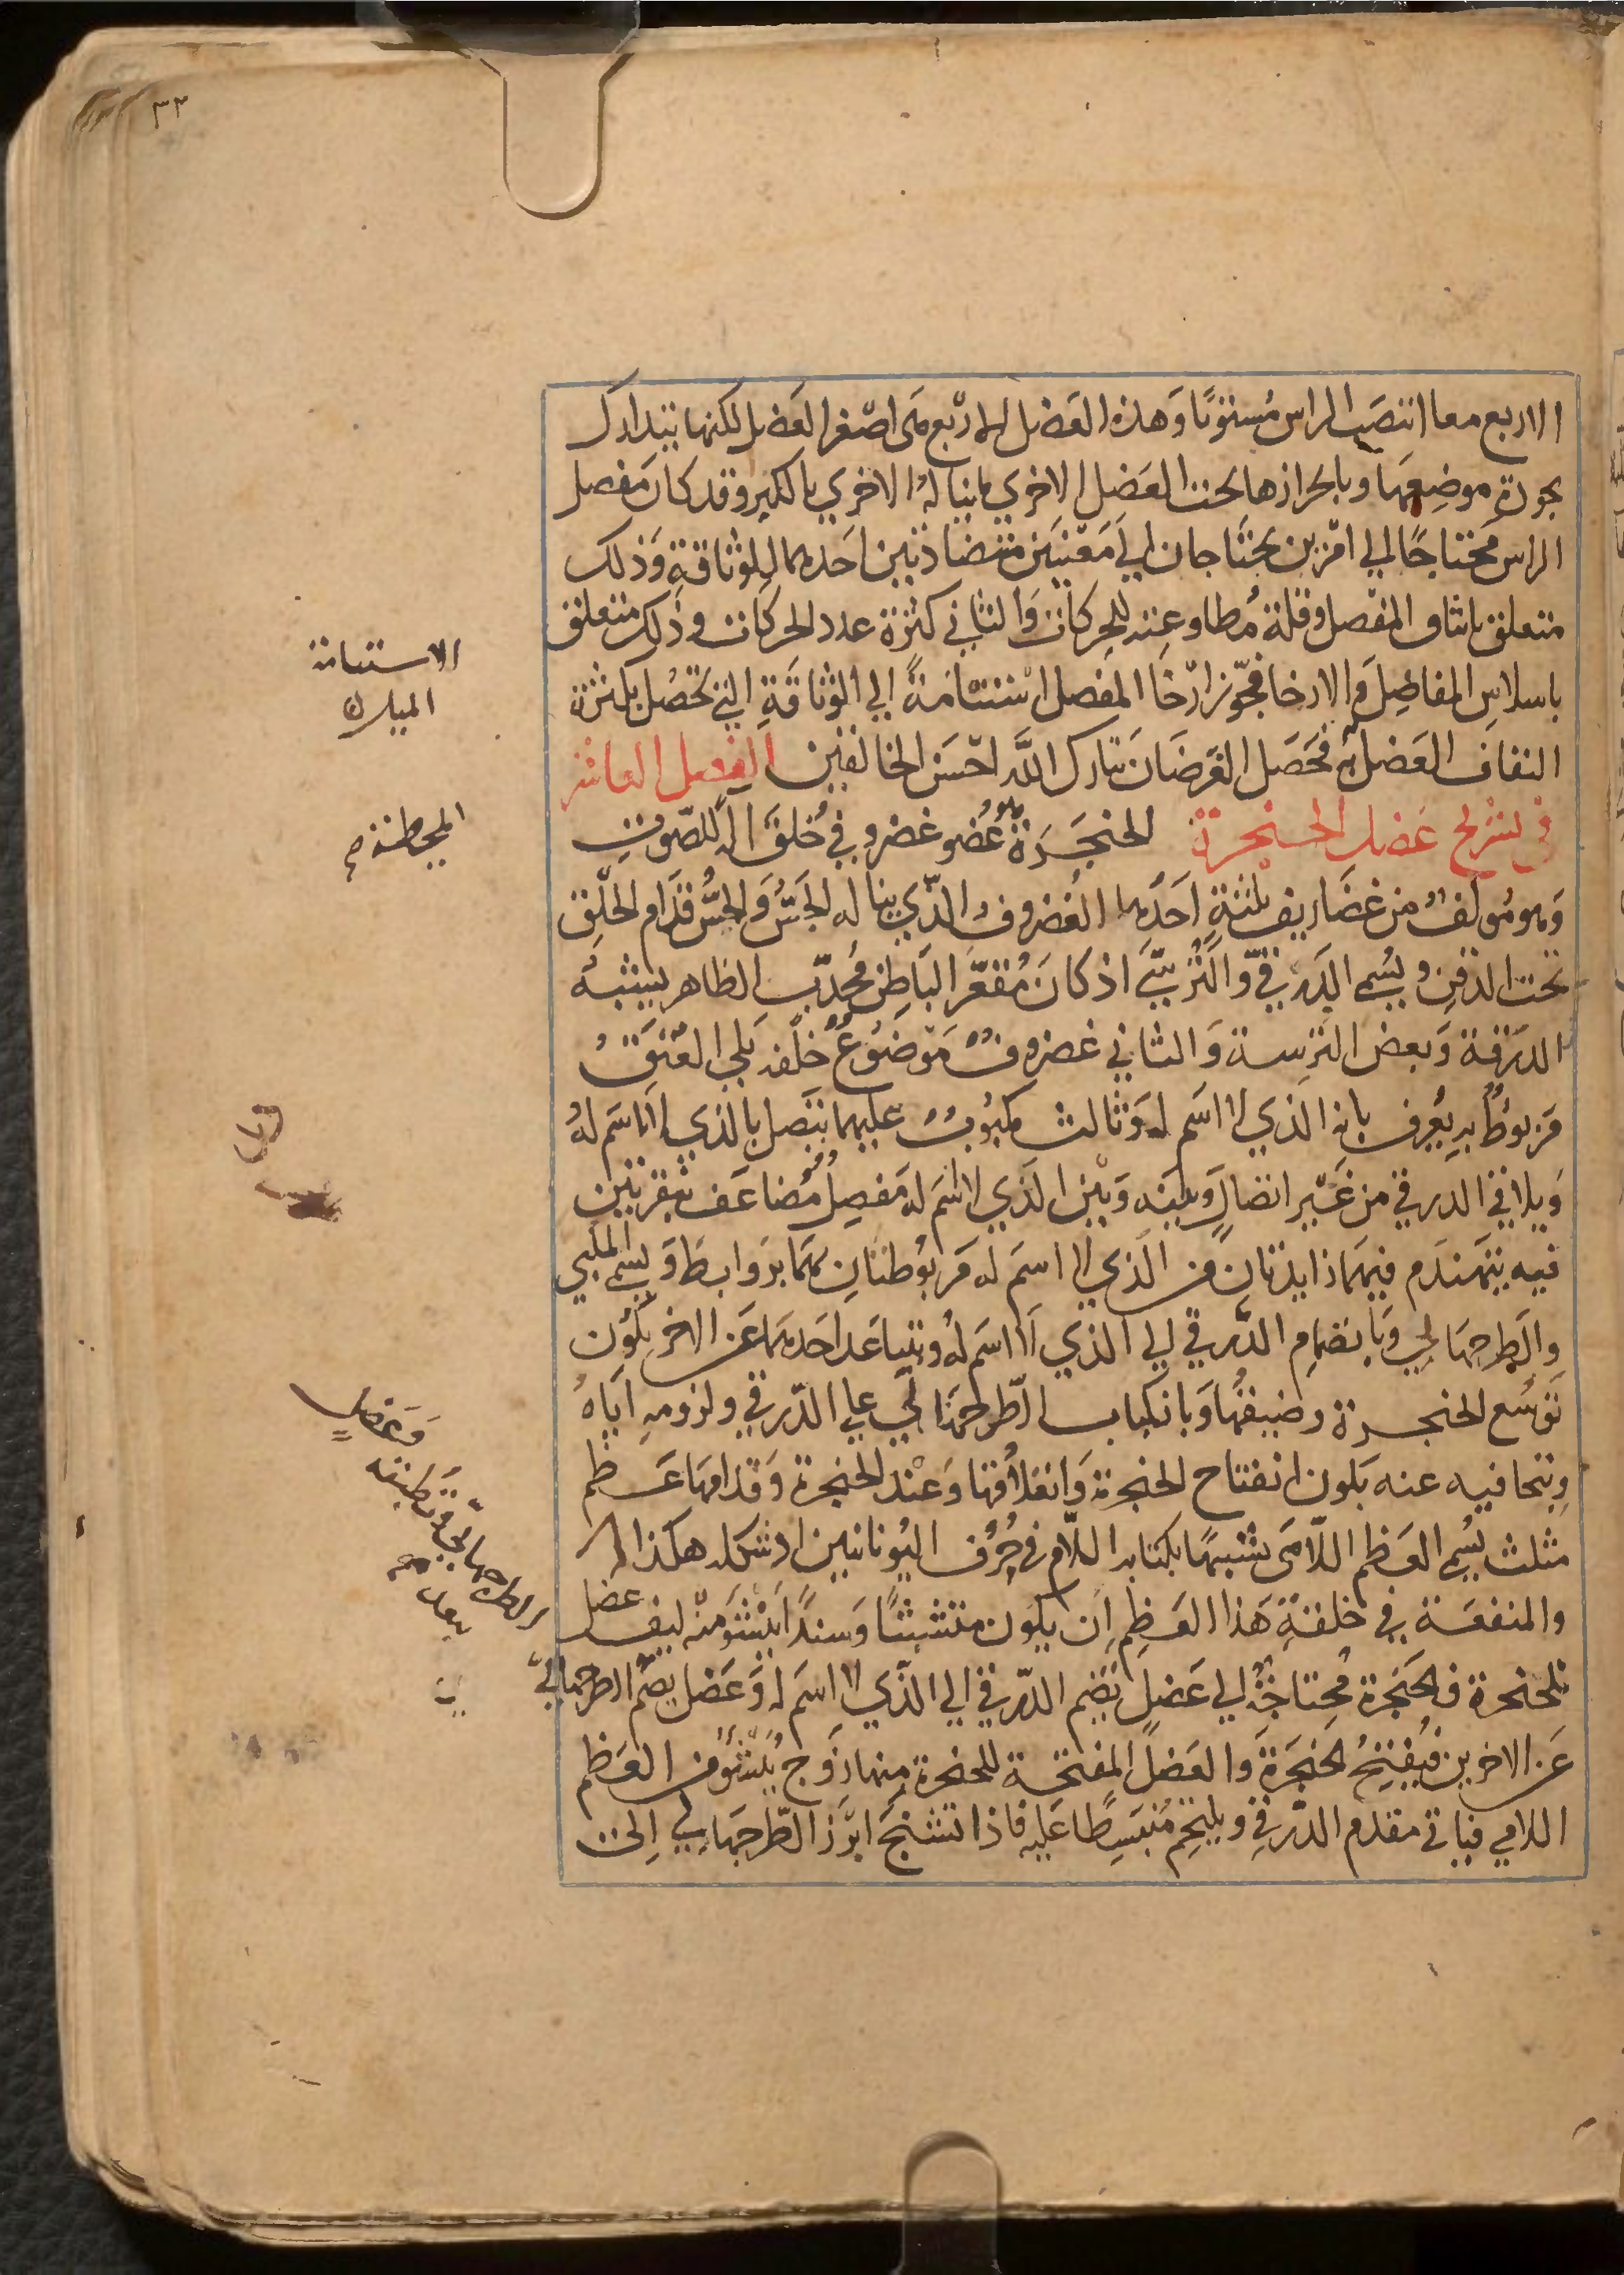 ٣٣
الاربع معا انتصب الراس مستويا وهذه العضل الاربع هى اصغر العضل لكنها تتدارك
بجودة موضعها وباحرازها تحت العضل الاخرى ما يناله الاخرى بالكبر وقد كان مفصل
الراس محتاجا الي امرين يحتاجان الي معنيين متضادين احدهما للوثاقة وذلك
متعلق بايثاق المفصل وقلة مطاوعته للحركات والثاني كثرة عدد الحركات وذلك متعلق
باسلاس المفاصل والارخا فجوز ارخا المفصل استنامة الي الوثاقة التي تحصل بكثرة
التفاف العضل به فحصل الغرضان تبارك الله احسن الخالقين الفصل العاشر
في تشريح عضل الحنجرة الحنجرة عضو غضروفي خلق آلة للصوت
وهو مولف من غضاريف ثلثة احدها الغضروف الذي يناله الجس والجس قدام الحلق
تحت الذقن ويسمي الدرقي والترسي اذ كان مقعر الباطن محدب الظاهر يشبه
الدرقة وبعض الترسة والثاني غضروف موضوع خلفه يلي العنق
مربوط به يعرف بانه الذي لا اسم له وثالث مكبوب عليهما يتصل بالذي لا اسم له
ويلاقي الدرقي من غير اتصال وبينه وبين الذي لا اسم له مفصل مضاعف بنقرتين
فيه يتهندم فيهما زايدتان من الذي لا اسم له مربوطتان بهما بروابط ويسمي المكبي
والطرجهالي وبانضمام الدرقي الي الذي لا اسم له وتباعد احدهما عن الاخر يكون
توسع الحنجرة وضيقها وبانكباب الطرجهالي علي الدرقي ولزومه اياه
وبتجافيه عنه يكون انفتاح الحنجرة وانغلاقها وعند الحنجرة وقدامها عظم
مثلث يسمي العظم اللامى تشبيها بكتابة اللام في حروف اليونانيين اذ شكله هكذا Λ
والمنفعة في خلقة هذا العظم ان يكون متشبثا وسندا ينشو منه ليف عضل
الحنجرة فالحنجرة محتاجة الي عضل تضم الدرقي الي الذي لا اسم له وعضل يضم الطرجهالي
عن الاخرين فيفتح الحنجرة والعضل المفتحة للحنجرة منها زوج ينشو من العظم
اللامي فياتي مقدم الدرقي ويلتحم منبسطا عليه فاذا تشنج ابرز الطرجهالي الى
الاستنامة
المبارك
وعضل
الطرجهالي وتطبقه
يبعد